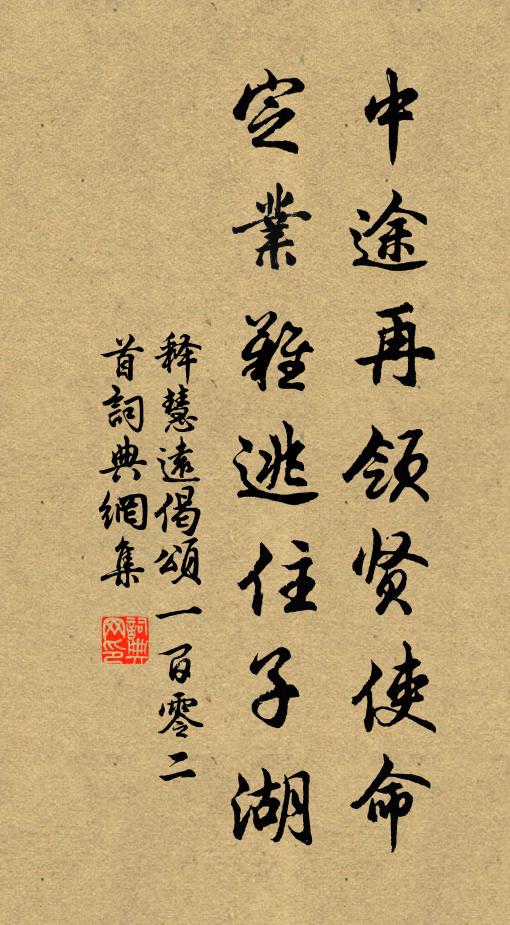 中途再领贤使命
定業難逃住子湖
释慧遠偈頌一百零二
首詞典網集
詞典网印